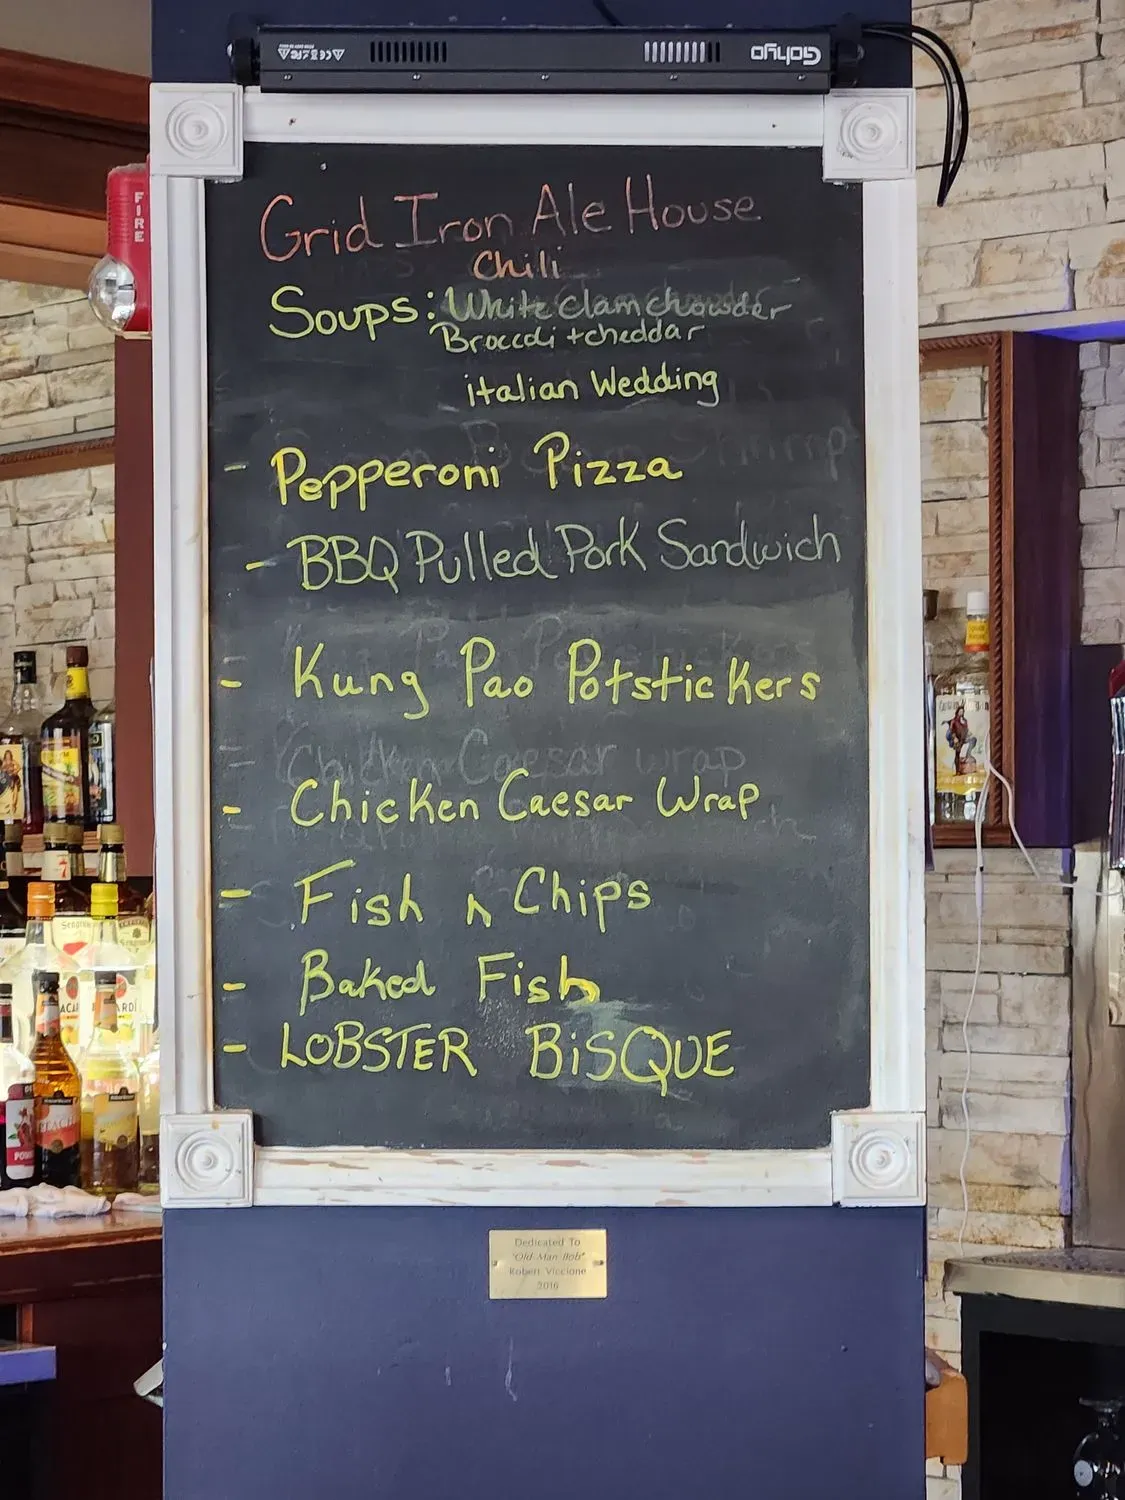 Gohyo
FIRE
Grid Iron Ale House
Chili
Soups: White clam chowder
Broccoli + cheddar
italian Wedding
- Pepperoni Pizza
- BBQ Pulled Pork Sandwich
- Kung Pao Potstickers
Chicken Caesar wrap
- Chicken Caesar Wrap
- Fish n Chips
- Baked Fish
- LOBSTER BISQUE
Dedicated To
"Old Man Bob"
Robert Viccione
2016